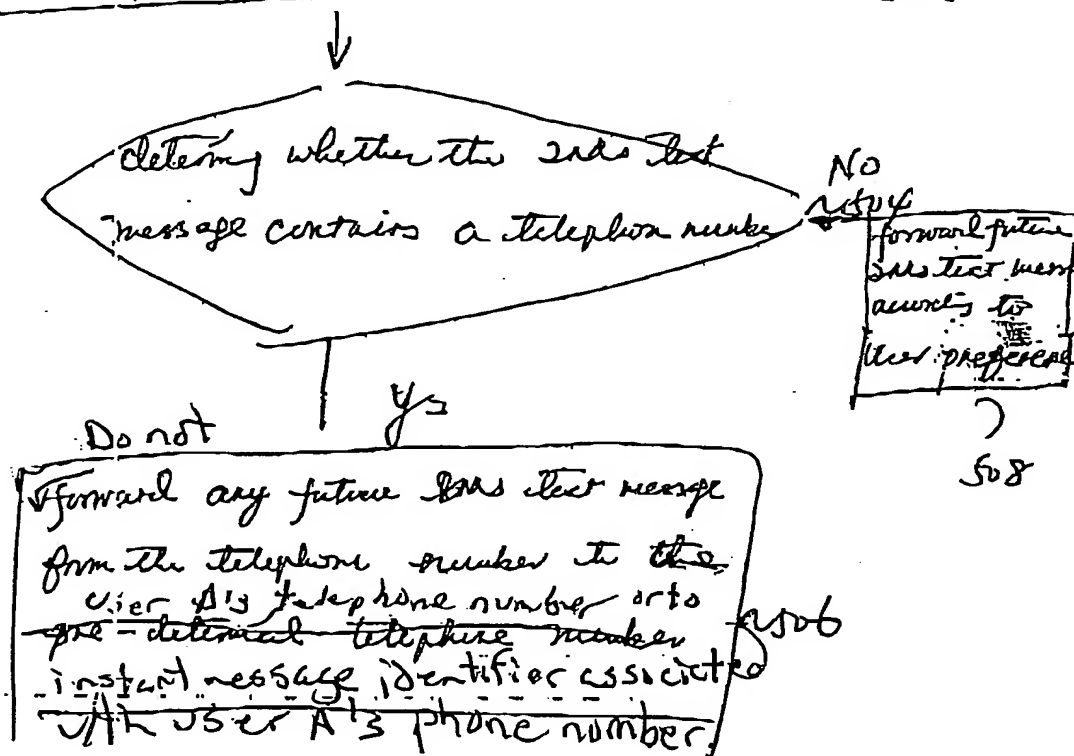 determing whether the SMS text
message contains a telephon number
No
504
forward future
SMS text mess
according to
User preference
508
Ys
Do not
forward any future SMS text message
from the telephone number to the
User A's telephone number or to
pre-determined telephone number
instant message identifier associated
with User A's phone number.
506